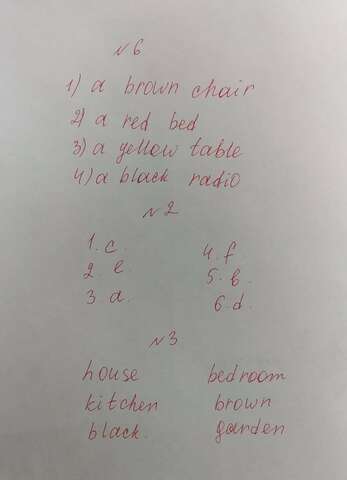 №6
1) a brown chair
2) a red bed
3) a yellow table
4) a black radio
№2
1. c. 4. f.
2. e. 5. b.
3. a. 6. d.
№3
house bedroom
kitchen brown
black. garden